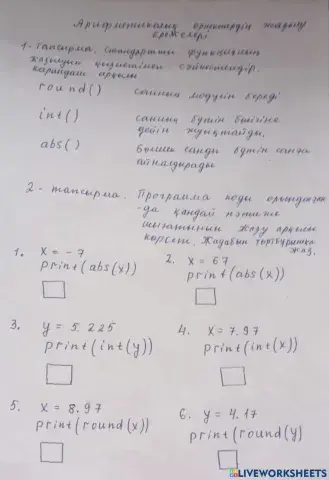 Арифметикалық өрнектердің жазылу ережелері
1-тапсырма. Стандартты функцияның
жазылуын қызметімен сәйкестендір.
қарындаш арқылы
round() санның модулін береді
int() санның бүтін бөлігіне
дейін жұықтайды.
abs() бөлшек санды бүтін санға
айналдырады
2-тапсырма. Программа коды орындалған
-да қандай нәтиже
шығатынын жазу арқылы
көрсет. Жауабын төртбұрышқа
жаз.
1. x = -7
print(abs(x))
2. x = 67
print(abs(x))
3. y = 5.225
print(int(y))
4. x = 7.97
print(int(x))
5. x = 8.97
print(round(x))
6. y = 4.17
print(round(y)
LIVEWORKSHEETS